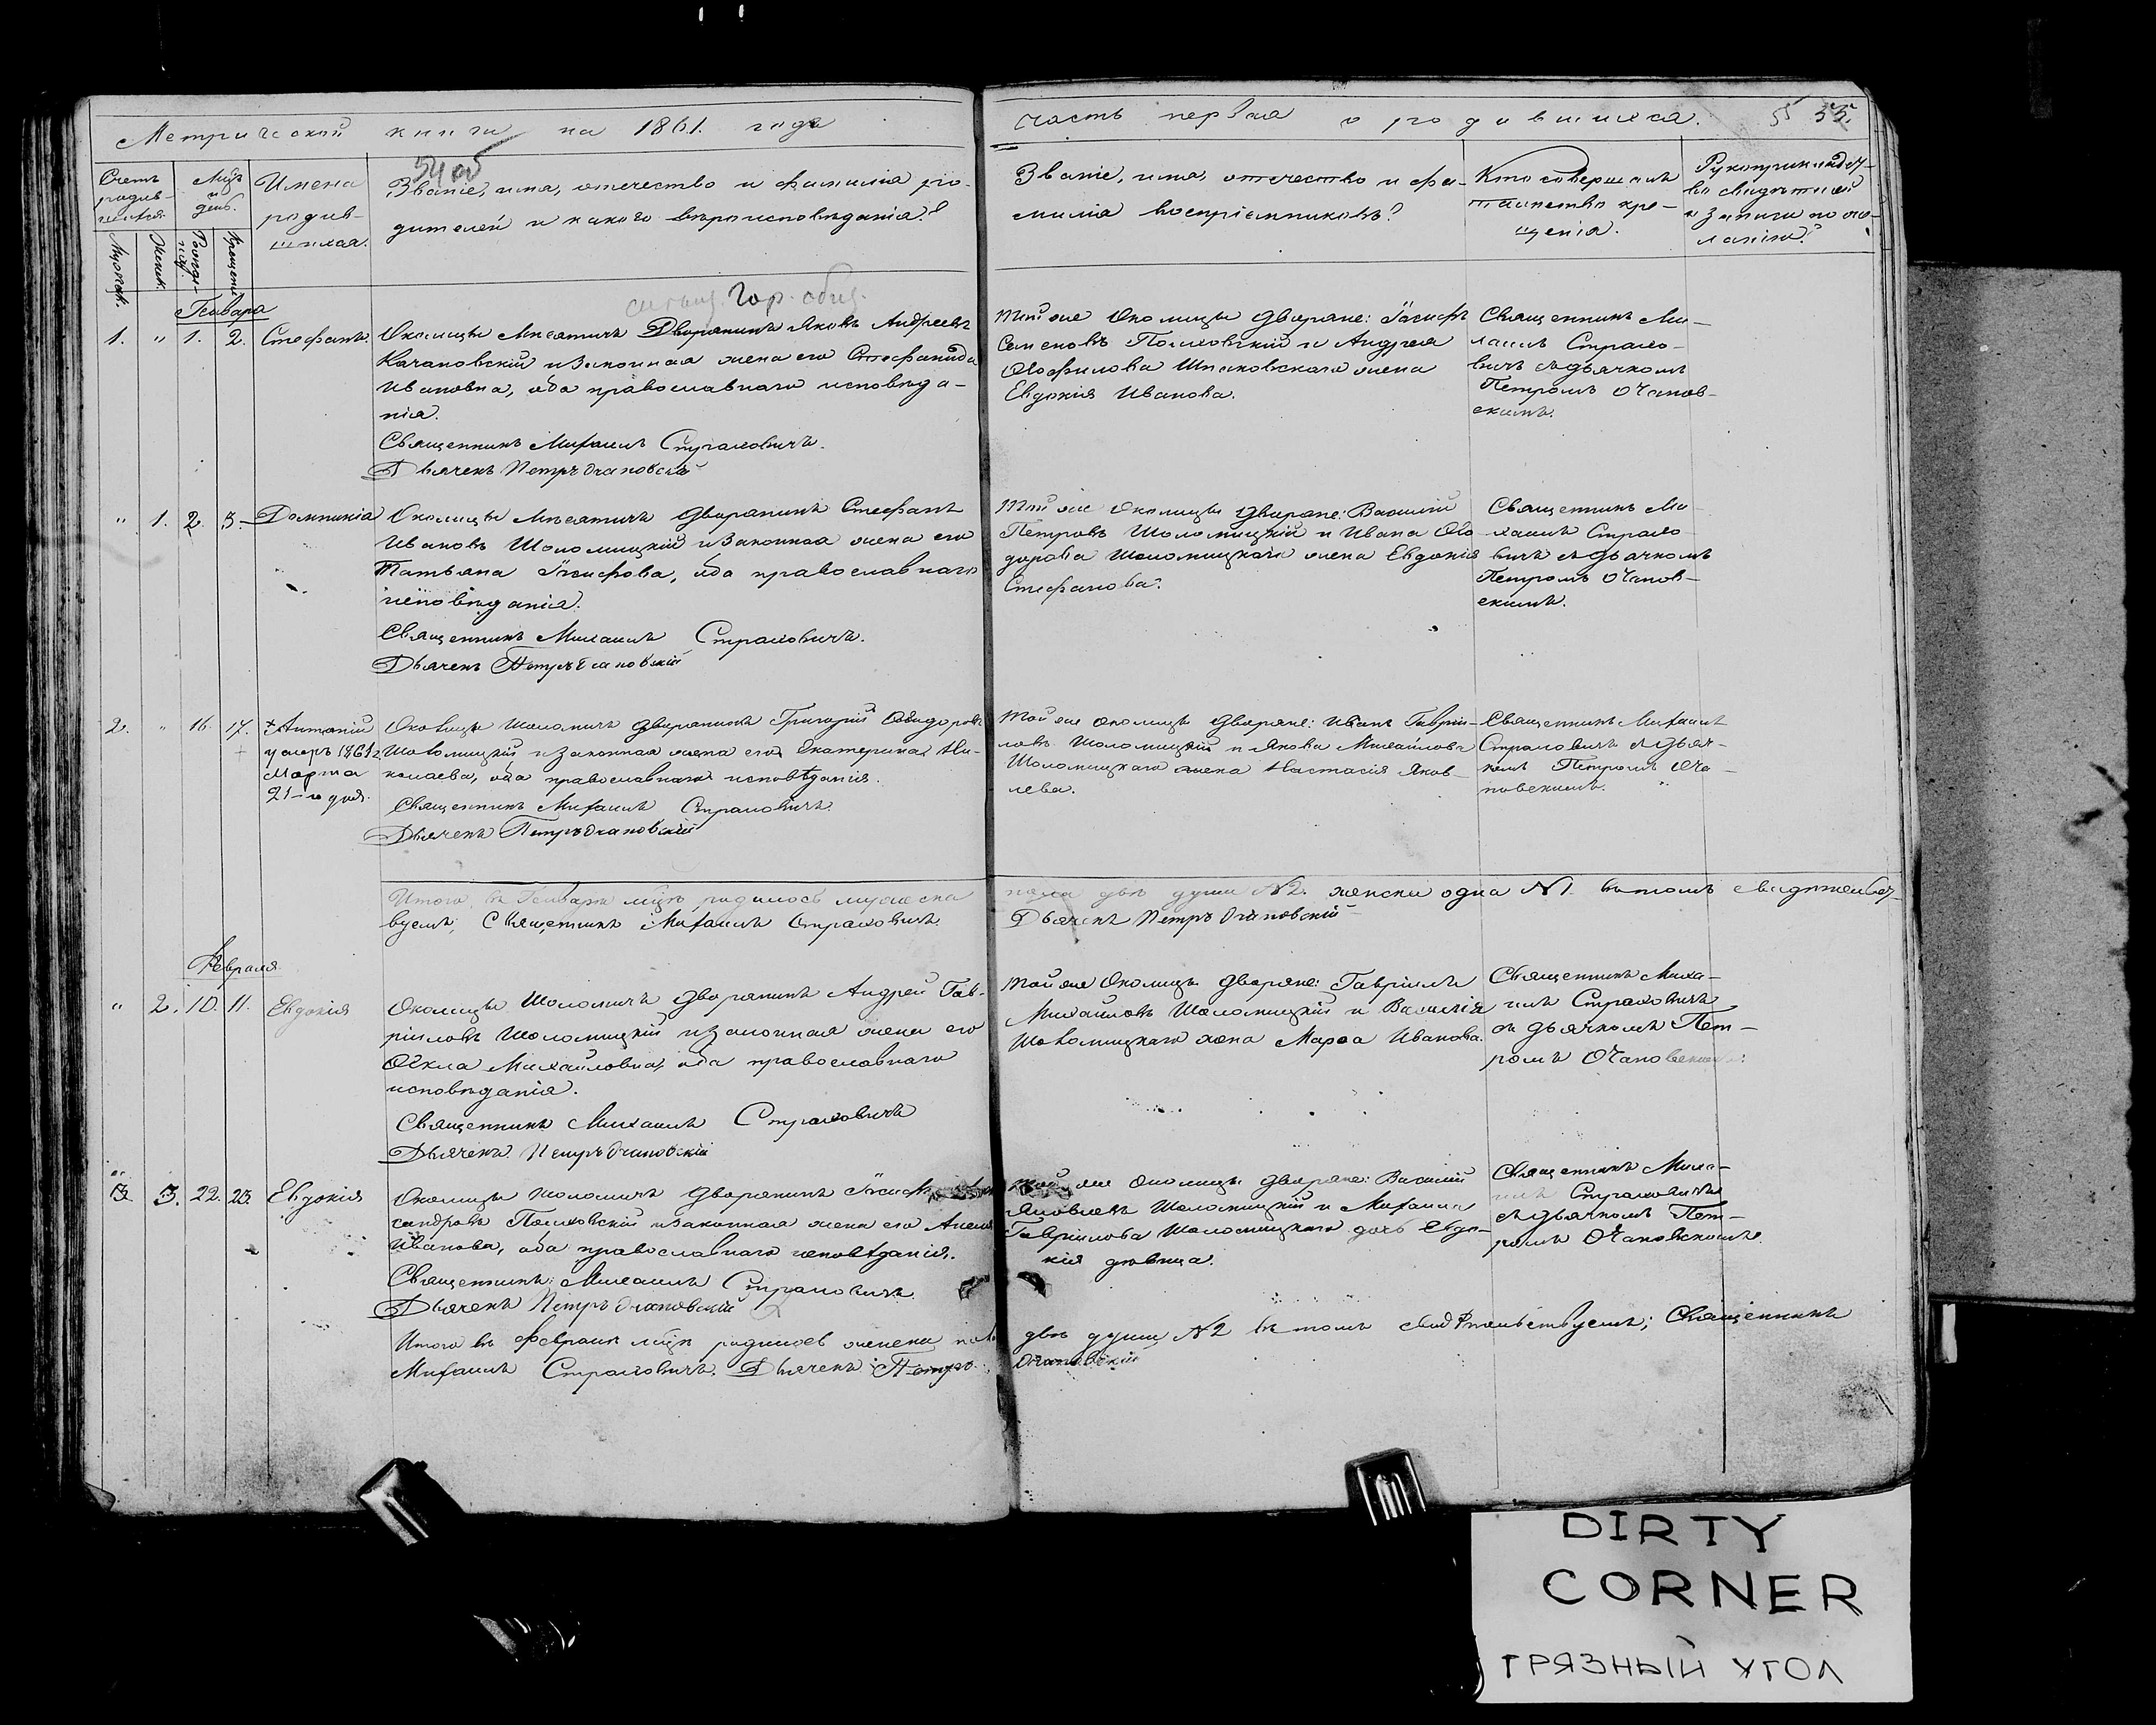 Метрической книги на 1861. годъ
часть первая о родившихся.
55 55.
54 об
Счетъ родив-
шихся.
Мужеск.
Женск.
Мцъ и день.
Рожде-
нія.
Крещенія
Имена
родив-
шихся.
Званіе, имя, отечество и фамилія ро-
дителей и какого вѣроисповѣданія?
Званіе, имя, отечество и фа-
милія воспріемниковъ?
Кто совершалъ
таинство кре-
щенія.
Рукоприкладст-
во свидѣтелей
и записи по же-
ланію?
Гор. общ.
Генваря
1. " 1. 2. Стефанъ.
Околицы Мнсятичъ Дворянинъ Яковъ Андреевъ
Качановскій и законная жена его Стефанида
Ивановна, оба православнаго исповѣда-
нія.
Священникъ Михаилъ Страховичъ.
Дьячекъ Петръ Очановскій
Той же Околицы дворяне: Іосифъ
Семеновъ Полховскій и Андрея
Ѳеофилова Шпаковскаго жена
Евдокія Иванова.
Священникъ Ми-
хаилъ Страхо-
вичъ съ дьячкомъ
Петромъ Очанов-
скимъ.
" 1. 2. 3. Домникія
Околицы дворянинъ Стефанъ
Ивановъ Шоломицкій и законная жена его
Татьяна Іосифова, оба православнаго
исповѣданія.
Священникъ Михаилъ Страховичъ.
Дьячекъ Петръ Очановскій
Той же Околицы дворяне: Василій
Петровъ Шоломицкій и Ивана Ѳео
дорова Шоломицкаго жена Евдокія
Стефанова.
Священникъ Ми
хаилъ Страхо
вичъ съ дьячкомъ
Петромъ Очанов-
скимъ.
2. " 16. 17. + Антоній
умеръ 1861 г
Марта
21-го дня.
Околицы Шоломичъ дворянинъ Григорій Ѳеодоровъ
Шоломицкій и законная жена его Екатерина Ни-
колаева, оба православнаго исповѣданія.
Священникъ Михаилъ Страховичъ
Дьячекъ Петръ Очановскій
Той же околицы дворяне: Иванъ Гаврии-
ловъ Шоломицкій и Якова Михайлова
Шоломицкаго жена Настасія Яков-
лева.
Священникъ Михаилъ
Страховичъ съ дьяч-
комъ Петромъ Оча-
новскимъ.
Итого въ Генварѣ мцѣ родилось мужеска
пола двѣ души №2. женска одна №1. въ томъ свидѣтельст-
вуемъ; Священникъ Михаилъ Страховичъ.
Дьячекъ Петръ Очановскій
Февраля
" 2. 10. 11. Евдокія
Околицы Шоломичъ дворянинъ Андрей Гав-
ріиловъ Шоломицкій и законная жена его
Ѳекла Михайловна, оба православнаго
исповѣданія.
Священникъ Михаилъ Страховичъ
Дьячекъ Петръ Очановскій
Той же Околицы дворяне: Гавріилъ
Михайловъ Шоломицкій и Василія
Шоломицкаго жена Марѳа Иванова.
Священникъ Миха-
илъ Страховичъ
съ дьячкомъ Пет-
ромъ Очановскимъ.
3. 22. 23. Евдокія
Околицы Шоломичъ дворянинъ Іосифъ
сандровъ Полховскій и законная жена его
Иванова, оба православнаго исповѣданія.
Священникъ Михаилъ Страховичъ
Дьячекъ Петръ Очановскій
Той же Околицы дворяне: Василій
Яковлевъ Шоломицкій и Михаила
Гавріилова Шоломицкаго дочь Евдо-
кія дѣвица.
Священникъ Миха-
илъ Страховичъ
съ дьячкомъ Пет-
ромъ Очановскимъ.
Итого въ Февралѣ мцѣ родилось женска пола
двѣ души №2 въ томъ свидѣтельствуемъ; Священникъ
Михаилъ Страховичъ. Дьячекъ Петръ
Очановскій
DIRTY
CORNER
ГРЯЗНЫЙ УГОЛ